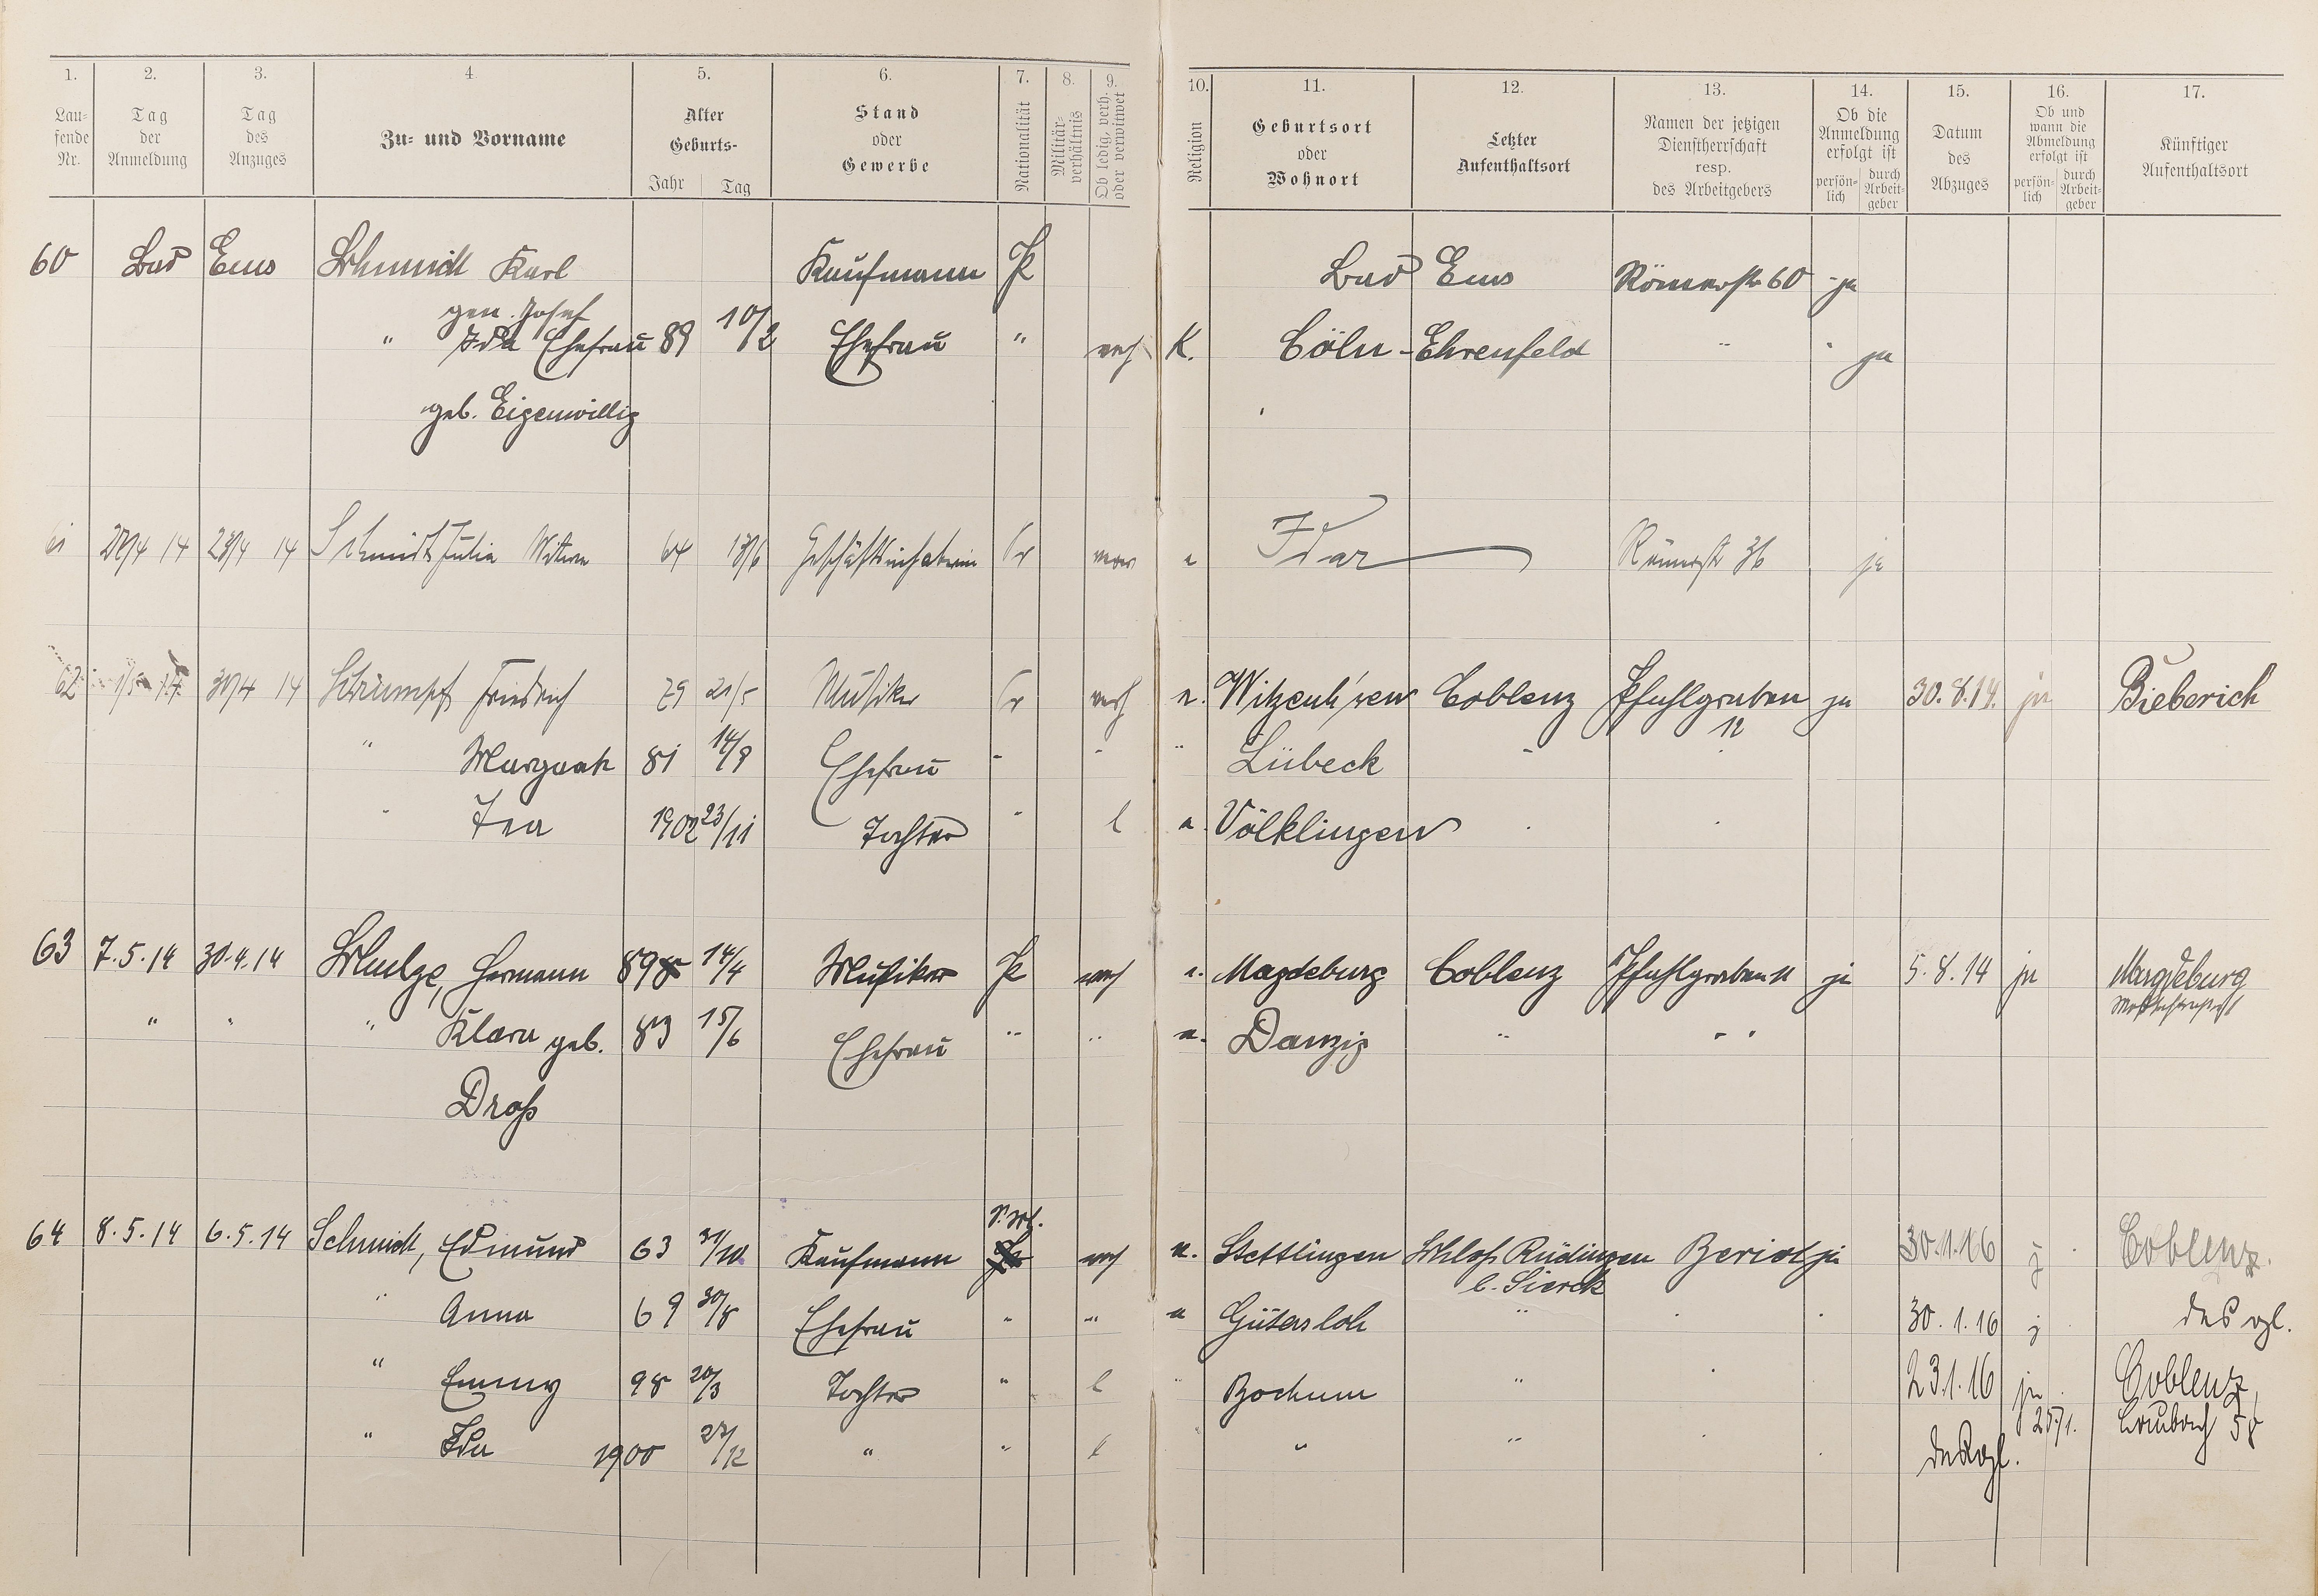 1. 2. 3. 4. 5. 6. 7. 8. 9. 10. 11. 12. 13. 14. 15. 16. 17.
Lau- fende Nr.
Tag der Anmeldung
Tag des Anzuges
Zu- und Vorname
Alter Geburts- Jahr Tag
Stand oder Gewerbe
Nationalität
Militär- verhältnis
Ob ledig, verh. oder verwitwet
Religion
Geburtsort oder Wohnort
Letzter Aufenthaltsort
Namen der jetzigen Dienstherrschaft resp. des Arbeitgebers
Ob die Anmeldung erfolgt ist persön- lich durch Arbeit- geber
Datum des Abzuges
Ob und wann die Abmeldung erfolgt ist persön- lich durch Arbeit- geber
Künftiger Aufenthaltsort
60 Bad Ems Schmidt Karl Kaufmann Pr Bad Ems Römerstr 60 ja
gen. Josef
" Ida Ehefrau 89 10/2 Ehefrau " verh K. Cöln-Ehrenfeld " " ja
geb. Eigenwillig
61 27/4 14 23/4 14 Schmidt Julia Witwe 64 13/6 Geschäftsinhaberin Pr verw e Idar Römerstr 36 ja
62 1/5 14 30/4 14 Friedrich 79 21/5 Musiker Pr verh e. Coblenz Pfuhlgraben ja 30.8.14. ja Bieberich
12
" 81 14/9 Ehefrau " " " Lübeck "
" 1902 23/11 Tochter " l e. Völklingen " "
63 7.5.14 30.4.14 Hermann 89 14/4 Musiker Pr verh e. Magdeburg Coblenz Pfuhlgraben 11 ja 5.8.14 ja Magdeburg
" " " Klara geb. 83 15/6 Ehefrau " " e. Danzig " " "
Droß
64 8.5.14 6.5.14 Schmidt, Edmund 63 31/10 Kaufmann verh e. Stettlingen Schloß Rüdingen Beriot ja 30.1.16 j Coblenz.
b. Sierck
" Anna 69 30/8 Ehefrau " " e Gütersloh " " " 30.1.16 j desgl.
" Emmy 98 20/3 Tochter " l " Bochum " " 23.1.16 ja Coblenz,
25/1. Laubach 58
" Ida 1900 27/12 " " l " " " " desgl.